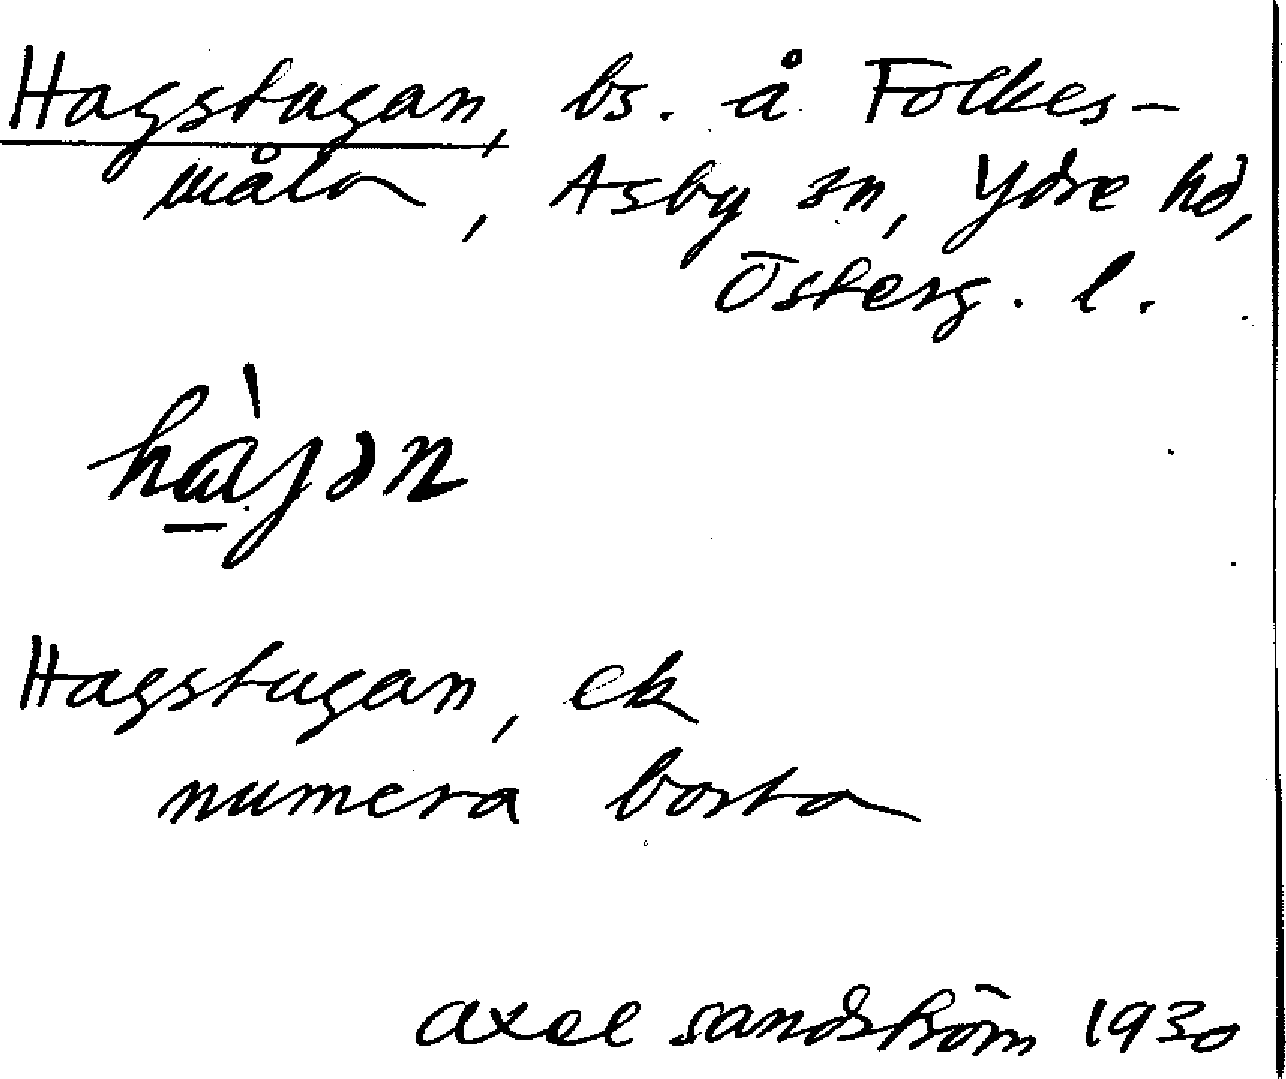 Hagstugan, bs. å Folkes-
måla, Asby sn, Ydre hd,
Österg. l.
hàjən
Hagstugan, ek
numera borta
axel sandström 1930